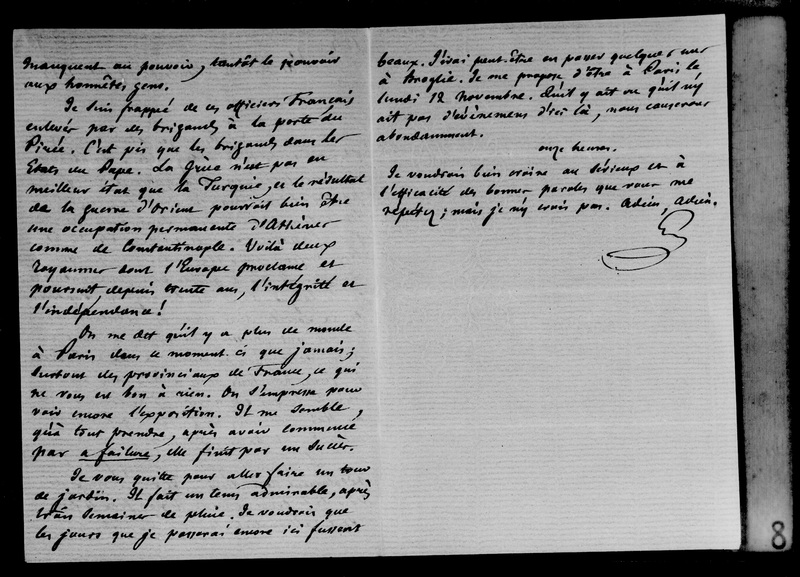 manquent au pouvoir, tantôt le pouvoir
aux honnêtes gens.
Je suis frappé de ces officiers Français
enlevés par des brigands à la porte du
Pirée. C'est pis que les brigands dans les
Etats du Pape. La Grèce n'est pas en
meilleur état que la Turquie, et le résultat
de la guerre d'Orient pourroit bien être
une occupation permanente d'Athènes
comme de Constantinople. Voilà deux
royaumes dont l'Europe proclame et
poursuit, depuis trente ans, l'intégrité et
l'indépendance !
On me dit qu'il y a plus de monde
à Paris dans ce moment-ci que jamais ;
surtout des provinciaux de France, ce qui
ne vous est bon à rien. On s'empresse pour
voir encore l'exposition. Il me semble,
qu'à tout prendre, après avoir commencé
par a failure, elle finit par un succès.
Je vous quitte pour aller faire un tour
de jardin. Il fait un tems admirable, après
trois semaines de pluie. Je voudrois que
les jours que je passerai encore ici fussent
beaux. J'irai peut-être en passer quelques uns
à Broglie. Je me propose d'être à Paris le
lundi 12 novembre. Qu'il y ait ou qu'il n'y
ait pas d'évènemens d'ici là, nous causerons
abondamment.
onze heures.
Je voudrois bien croire au sérieux et à
l'efficacité des bonnes paroles que vous me
répétez ; mais je n'y crois pas. Adieu, Adieu.
8